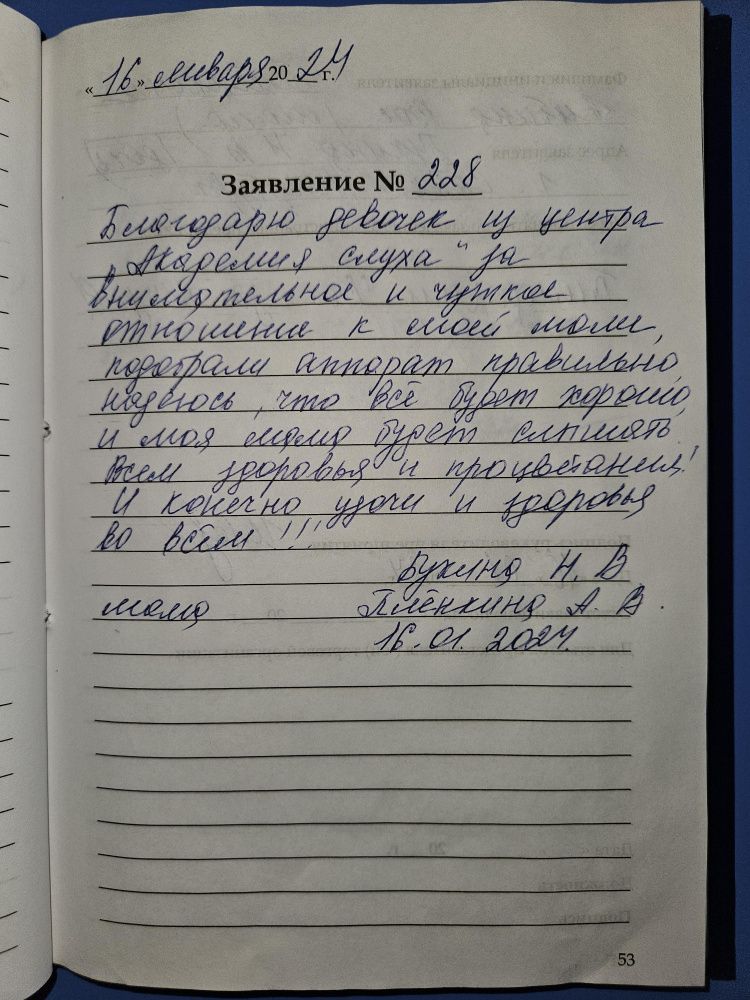 «16» января 2024 г.
Заявление № 228
Благодарю девочек из центра
„Академия слуха" за
внимательное и чуткое
отношение к моей маме,
подобрали аппарат правильно,
надеюсь, что всё будет хорошо,
и моя мама будет слышать.
Всем здоровья и процветания!
И конечно удачи и здоровья
во всём!!!
Букина Н. В
мама Плёнкина А. В.
16.01.2024.
53